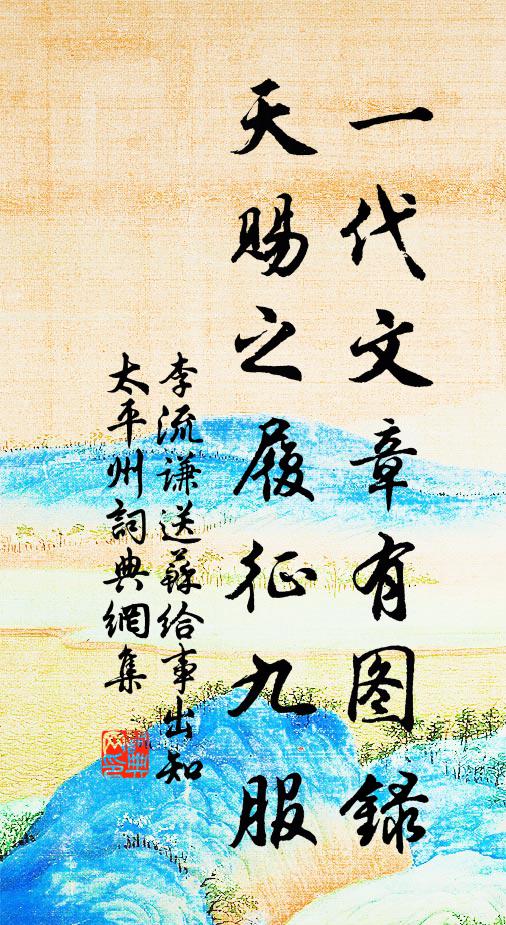 一代文章有图錄
天賜之履征九服
李流谦送蘇给事出知
太平州詞典網集